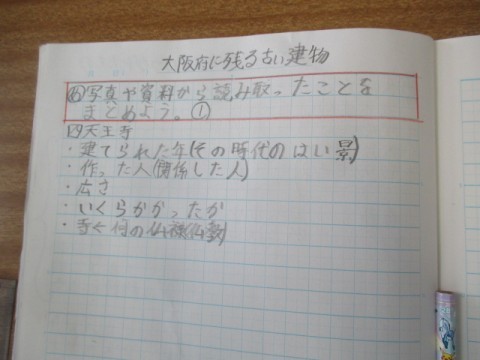 大阪府に残る古い建物
め写真や資料から読み取ったことを
まとめよう。①
四天王寺
・建てられた年(その時代のはい景)
・作った人(関係した人)
・広さ
・いくらかかったか
・寺 何の仏様(仏教)